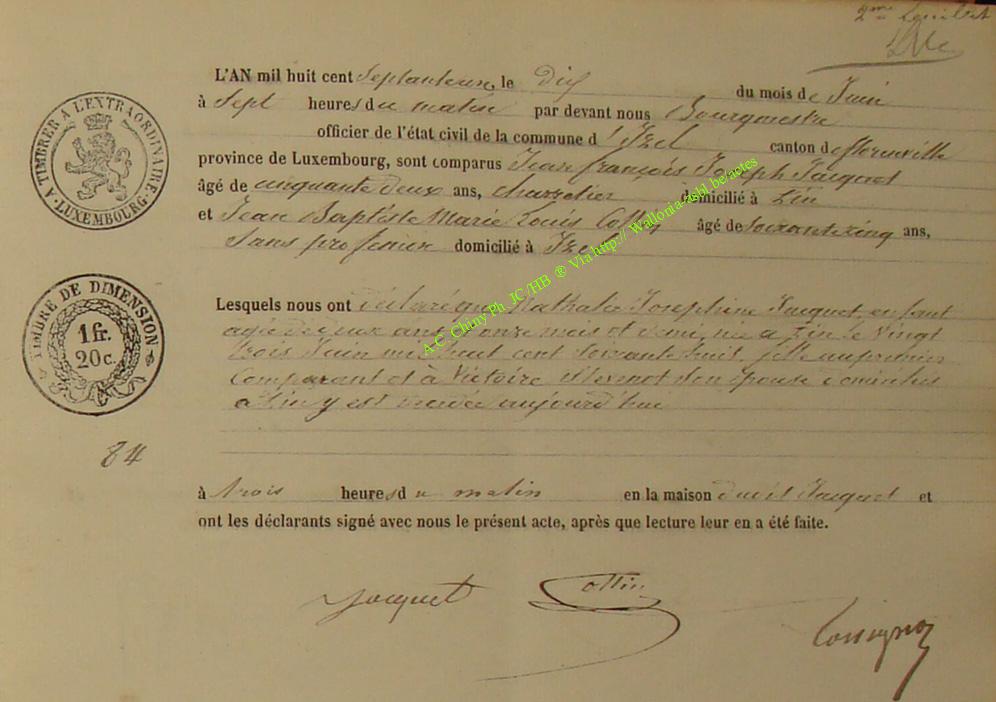 2me
L'AN mil huit cent Septante un, le Dix du mois de Juin
à Sept heures du matin par devant nous Bourgmestre
officier de l'état civil de la commune d'Izel canton de florenville
province de Luxembourg, sont comparus Jean françois Joseph Jacquet
âgé de cinquante deux ans, charretier domicilié à
et Jean Baptiste Marie Louis Collin âgé de soixante cinq ans,
Sans profession domicilié à Izel
Lesquels nous ont déclaré que Nathalie Josephine Jacquet, enfant
agée de deux ans onze mois et demi, née a le vingt
trois Juin mil huit cent soixante huit, fille au premier
Comparant et à Victoire son épouse domiciliés
a y est décédée aujourd'hui
à trois heures du matin en la maison dudit Jacquet et
ont les déclarants signé avec nous le présent acte, après que lecture leur en a été faite.
Jacquet Collin
A TIMBRER A L'EXTRAORDINAIRE
LUXEMBOURG
TIMBRE DE DIMENSION
1 fr.
20 c.
84
A.C. Chiny Ph. JC/HB ® Via http:// Wallonia-asbl.be/actes